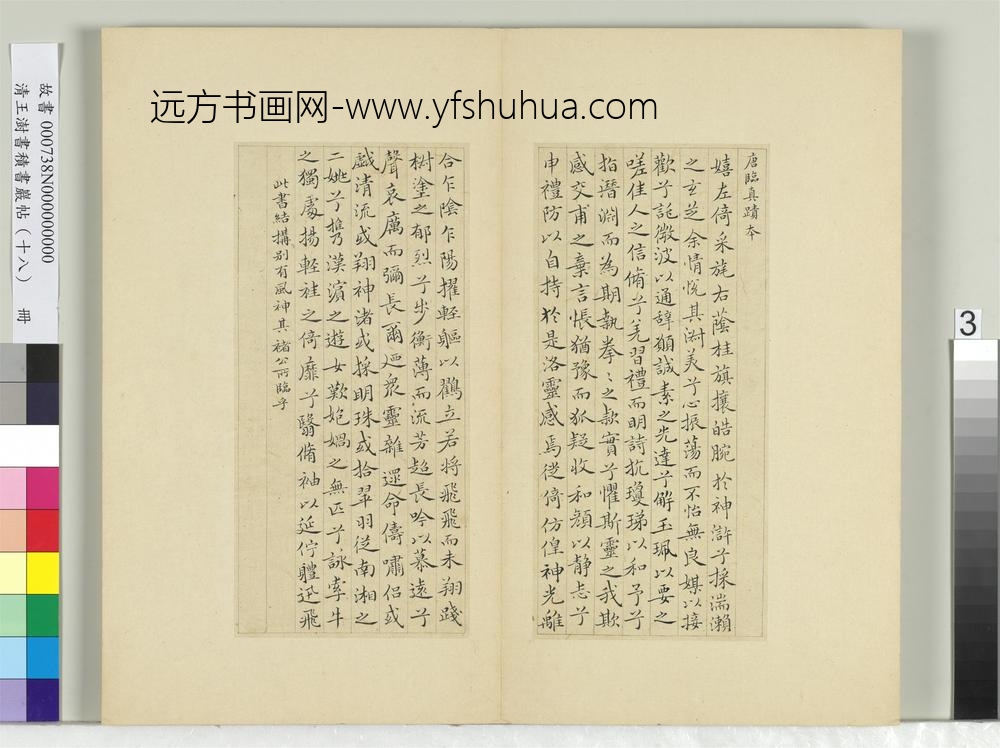 远方书画网-www.yfshuhua.com
故書 000738N000000000
清王澍書積書巖帖（十八） 冊
3
唐臨真蹟本
嬉左倚采旄右蔭桂旗攘皓腕於神滸兮採湍瀨
之玄芝余情悅其淑美兮心振蕩而不怡無良媒以接
歡兮託微波以通辭願誠素之先達兮解玉珮以要之
嗟佳人之信脩兮羌習禮而明詩抗瓊珶以和予兮
指潛淵而為期執拳〻之款實兮懼斯靈之我欺
感交甫之棄言悵猶豫而狐疑收和顏以静志兮
申禮防以自持於是洛靈感焉徙倚仿偟神光離
合乍陰乍陽擢輕軀以鶴立若將飛飛而未翔踐
椒塗之郁烈兮步衡薄而流芳超長吟以慕遠兮
聲哀厲而彌長爾廼衆靈雜遝命儔嘯侶或
戲清流或翔神渚或採明珠或拾翠羽從南湘之
二姚兮攜漢濱之遊女歎匏媧之無匹兮詠牽牛
之獨處揚輕袿之倚靡兮翳脩袖以延佇軆迅飛
此書結搆別有風神其褚公所臨乎